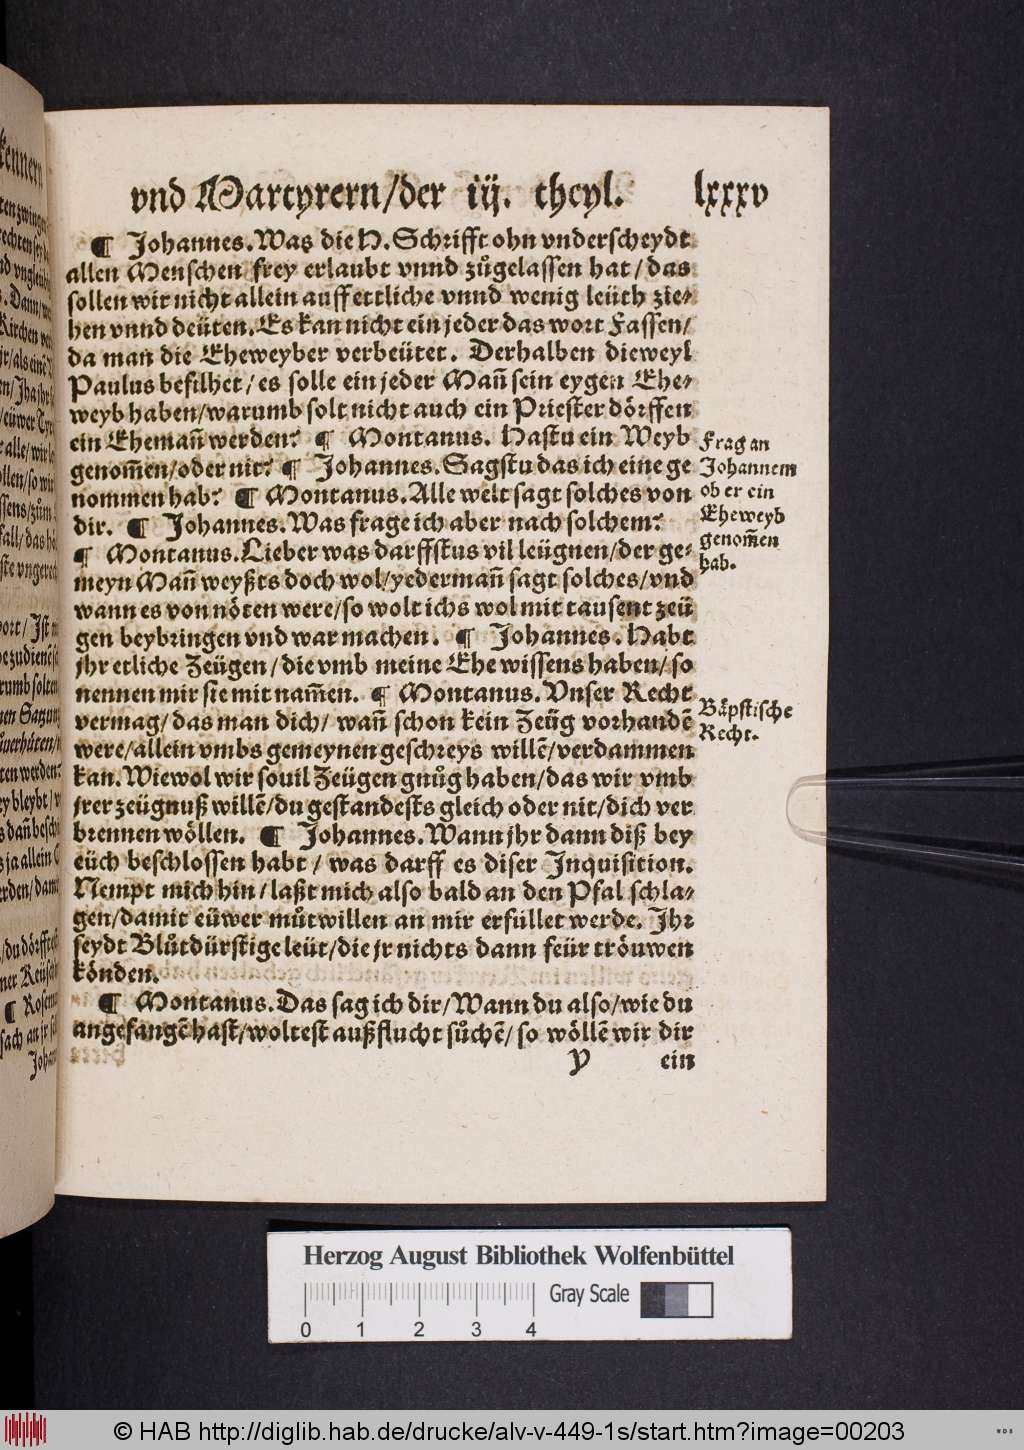 vnd Martyrern/der iij. theyl. lxxxv
¶ Johannes. Was die H. Schrifft ohn vnderscheydt
allen Menschen frey erlaubt vnnd zůgelassen hat/das
sollen wir nicht allein auff ettliche vnnd wenig leüth zie-
hen vnnd deüten. Es kan nicht ein jeder das wort Fassen/
da man die Eheweyber verbeütet. Derhalben dieweyl
Paulus befilhet/es solle ein jeder Mañ sein eygen Ehe-
weyb haben/warumb solt nicht auch ein Priester dörffen
ein Ehemañ werden? ¶ Montanus. Hastu ein Weyb
genom̃en/oder nit? ¶ Johannes. Sagstu das ich eine ge
nommen hab? ¶ Montanus. Alle welt sagt solches von
dir. ¶ Johannes. Was frage ich aber nach solchem?
¶ Montanus. Lieber was darffstus vil leügnen/der ge-
meyn Mañ weyßts doch wol/yedermañ sagt solches/vnd
wann es von nöten were/so wolt ichs wol mit tausent zeü
gen beybringen vnd war machen. ¶ Johannes. Habt
jhr etliche Zeügen/die vmb meine Ehe wissens haben/so
nennen mir sie mit nam̃en. ¶ Montanus. Vnser Recht
vermag/das man dich/wañ schon kein Zeüg vorhandẽ
were/allein vmbs gemeynen geschreys willẽ/verdammen
kan. Wiewol wir souil Zeügen gnůg haben/das wir vmb
jrer zeügnuß willẽ/du gestandests gleich oder nit/dich ver
brennen wöllen. ¶ Johannes. Wann jhr dann diß bey
eüch beschlossen habt/was darff es diser Inquisition.
Nempt mich hin/laßt mich also bald an den Pfal schla-
gen/damit eüwer můtwillen an mir erfüllet werde. Jhr
seydt Blůtdürstige leüt/die jr nichts dann feür tröuwen
könden.
¶ Montanus. Das sag ich dir/Wann du also/wie du
angefangẽ hast/woltest außflucht sůchẽ/so wöllẽ wir dir
Y ein
Frag an
Johannem
ob er ein
Eheweyb
genom̃en
hab.
Bäpstische
Recht.
Herzog August Bibliothek Wolfenbüttel
Gray Scale
0 1 2 3 4
© HAB http://diglib.hab.de/drucke/alv-v-449-1s/start.htm?image=00203